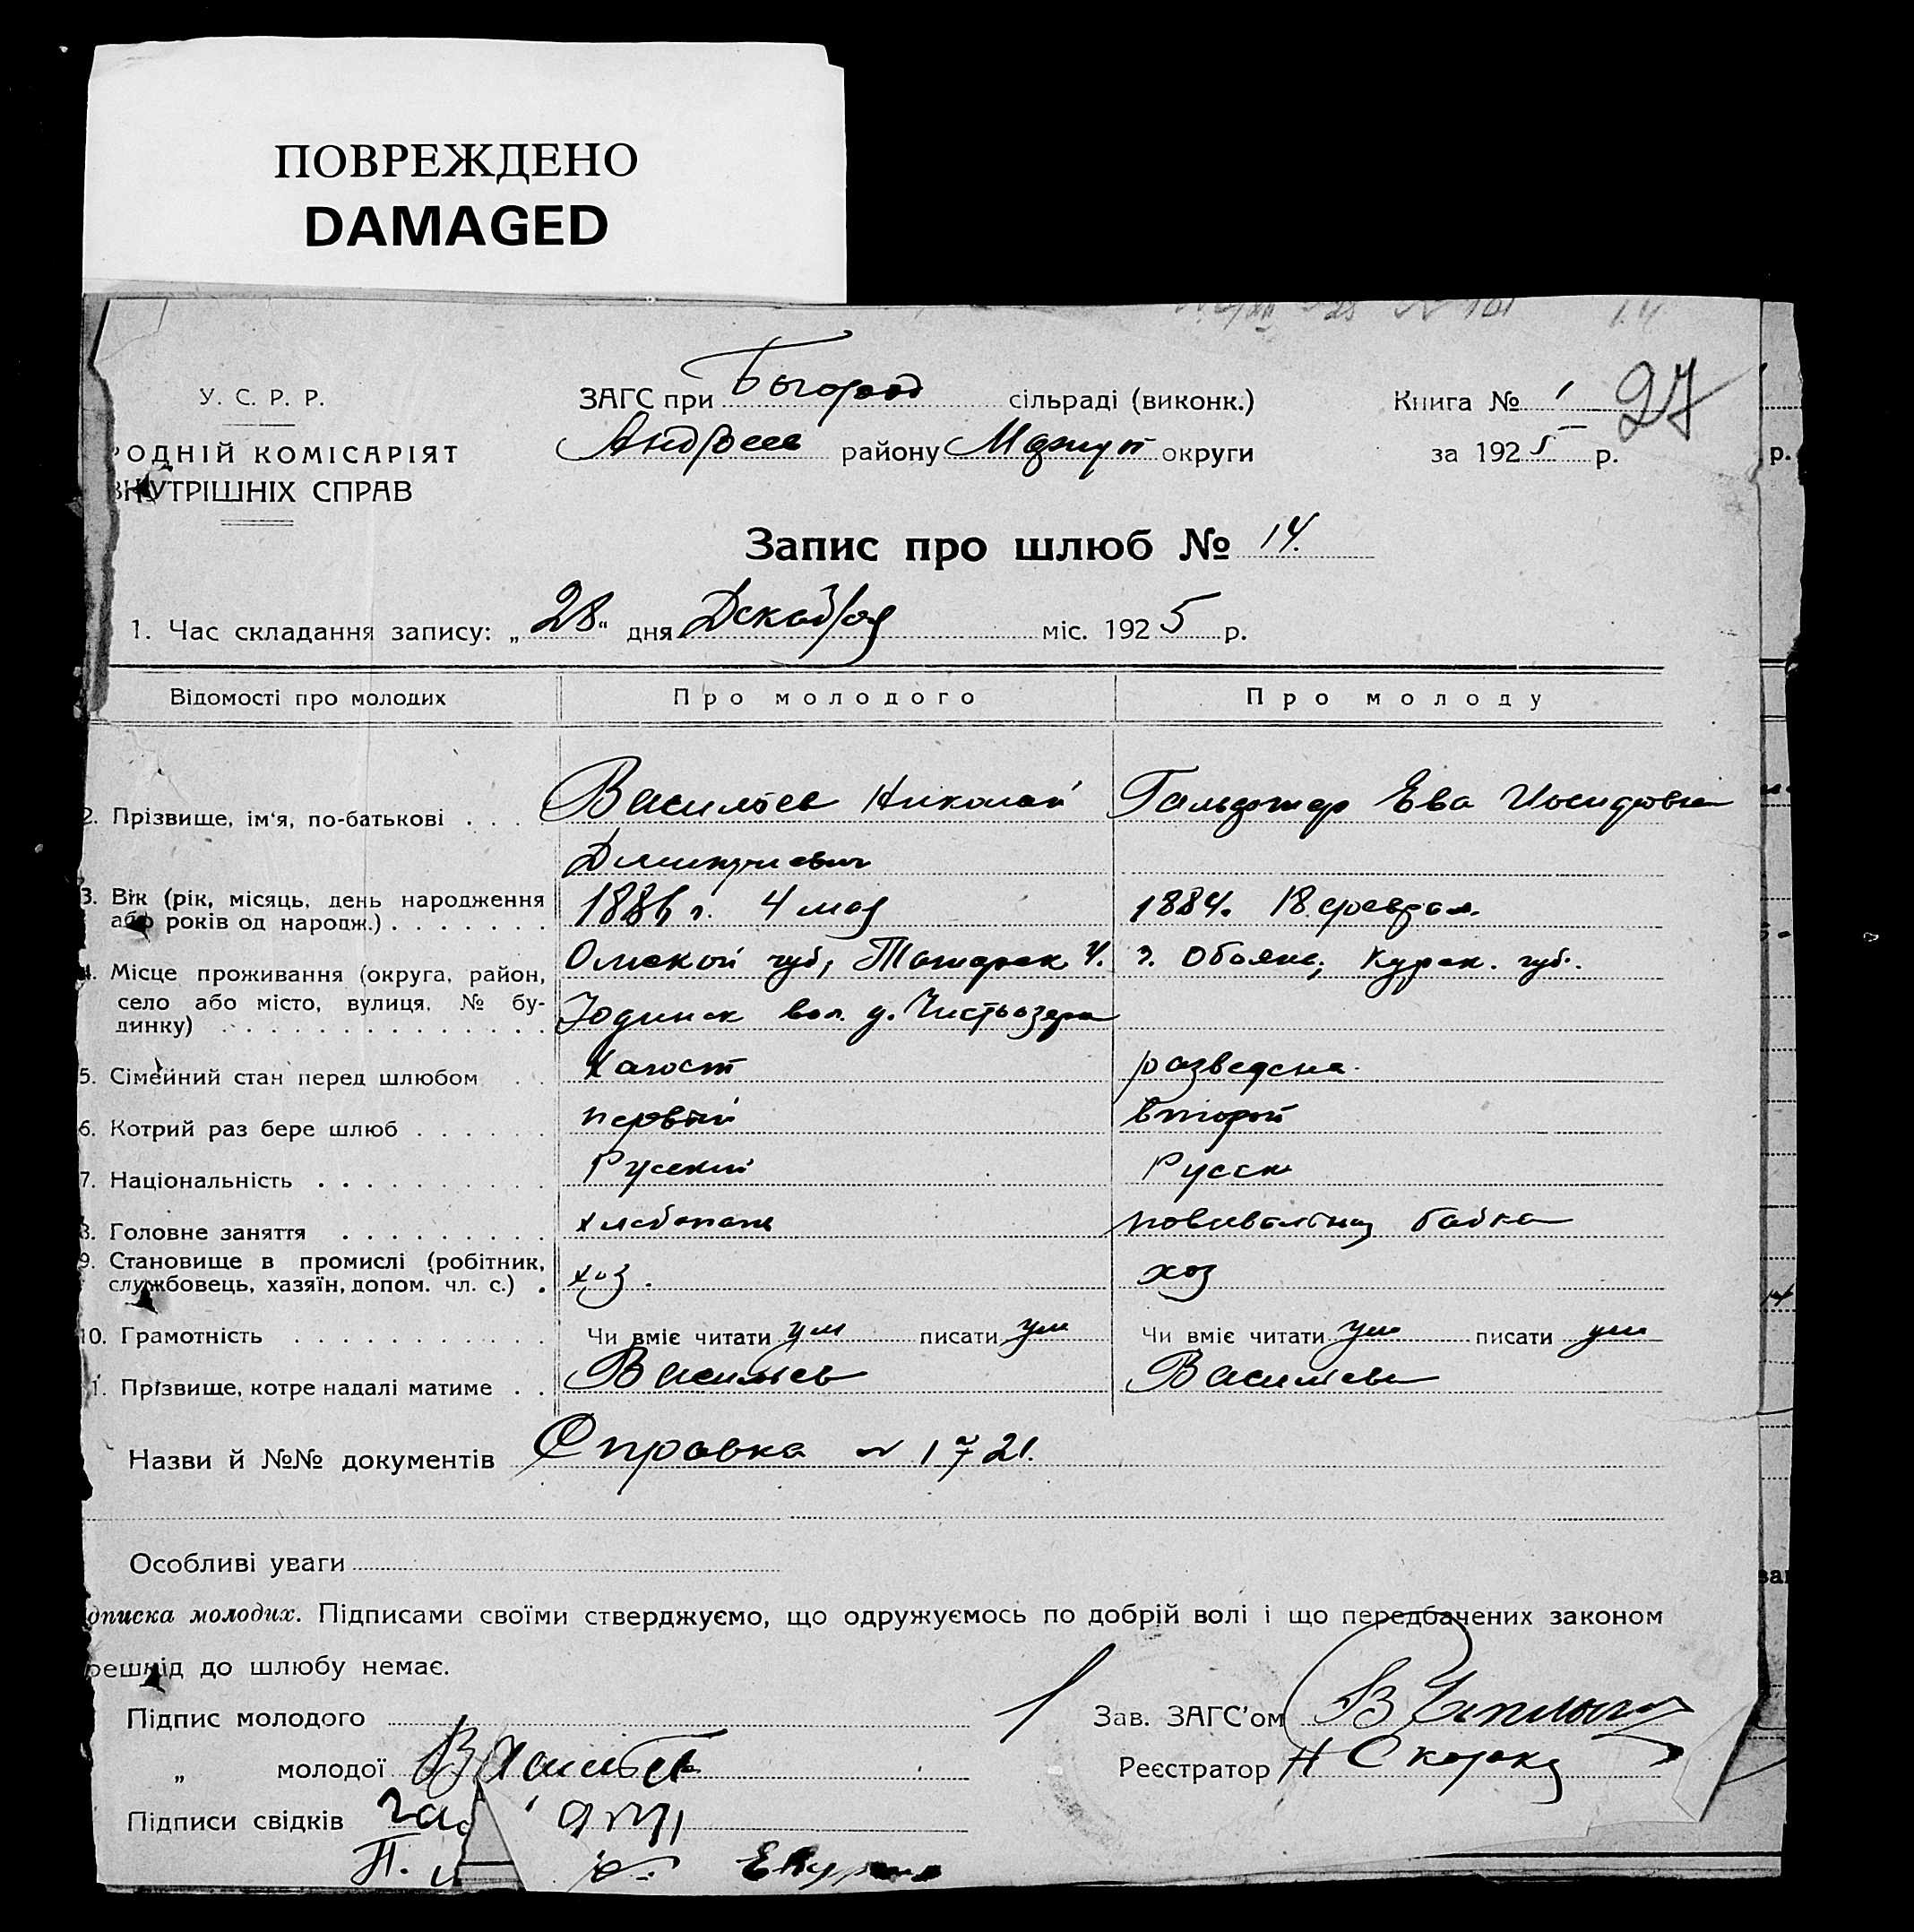 ПОВРЕЖДЕНО
DAMAGED
У. С. Р. Р.
РОДНІЙ КОМІСАРІЯТ
ВНУТРІШНІХ СПРАВ
ЗАГС при Богород сільраді (виконк.)
Андреев району Мариуп округи
Книга № 1
27
за 1925 р.
Запис про шлюб № 14.
1. Час складання запису: „28“ дня Декабря міс. 1925 р.
Відомості про молодих Про молодого Про молоду
2. Прізвище, ім'я, по-батькові . . . Васильев Николай Ева
Дмитриевич
3. Вік (рік, місяць, день народження
або років од народж.) . . . . . . . 1886 г. 4 мая 1884. 18 феврал.
4. Місце проживання (округа, район, Омской губ, Татарск у. г. Обоянь, Курск. губ.
село або місто, вулиця, № бу- вол. д. Чистоозерн
динку) . . . . . . . . . . . . . .
5. Сімейний стан перед шлюбом . . Холост разведена.
6. Котрий раз бере шлюб . . . . . . первый второй
7. Національність . . . . . . . . . . Русский Русск
8. Головне заняття . . . . . . . . . хлебопаш повивальная бабка
9. Становище в промислі (робітник,
службовець, хазяїн, допом. чл. с.) . хоз. хоз
10. Грамотність . . . . . . . . . . . Чи вміє читати ум писати ум Чи вміє читати ум писати ум
1. Прізвище, котре надалі матиме . . Васильев Васильева
Назви й №№ документів Справка № 1721.
Особливі уваги
дписка молодих. Підписами своїми стверджуємо, що одружуємось по добрій волі і що передбачених законом
решкід до шлюбу немає.
Підпис молодого
Зав. ЗАГС'ом
„ молодої Васильев
Реєстратор Н Скорокд
Підписи свідків